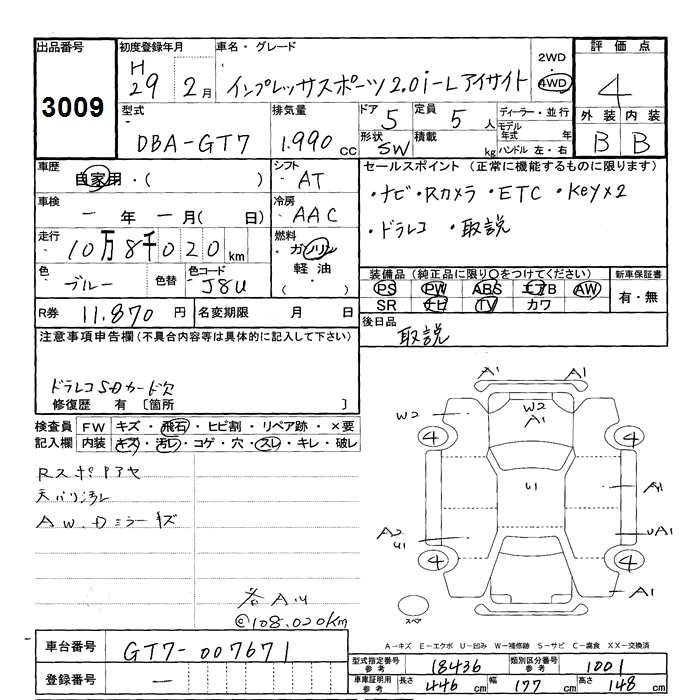 出品番号 初度登録年月 車名・グレード 評価点
3009 H29 2月 インプレッサスポーツ2.0i-Lアイサイト 2WD 4WD 4
型式 排気量 ドア 5 定員 5人 ディーラー・並行 外装 内装
DBA-GT7 1.990cc 形状 SW 積載 kg モデル年式 年 ハンドル 左・右 B B
車歴 自家用・( ) シフト AT セールスポイント (正常に機能するものに限ります)
車検 一年 一月( 日) 冷房 AAC ・ナビ・Rカメラ・ETC・Key×2
走行 10万8千020km 燃料 ガソリン 軽油 ( ・ ) ・ドラレコ ・取説
色 ブルー 色替 色コード J8U 装備品 (純正品に限り○をつけてください) 新車保証書
PS PW ABS エアB AW 有・無
SR ナビ TV カワ
R券 11.870円 名変期限 月 日 後日品
取説
注意事項申告欄(不具合内容等は具体的に記入して下さい)
ドラレコSDカード欠
修復歴 有 〔箇所 〕
検査員 FW キズ・飛石・ヒビ割・リペア跡・×要
記入欄 内装 キズ・汚レ・コゲ・穴・スレ・キレ・破レ
Rスポ
天バリ汚レ
AW.Dミラーキズ
各A.U
@108.020km
A1 A1
W2 W2 A1
4 4
U1 A1
A2 U1 UA1
4 4
A1
スペア
A-キズ E-エクボ U-凹み W-補修跡 S-サビ C-腐食 XX-交換済
車台番号 GT7-007671
登録番号 一
型式指定番号 参考 18436 類別区分番号 参考 1001
車庫証明用 参考 長さ 446cm 幅 177cm 高さ 148cm